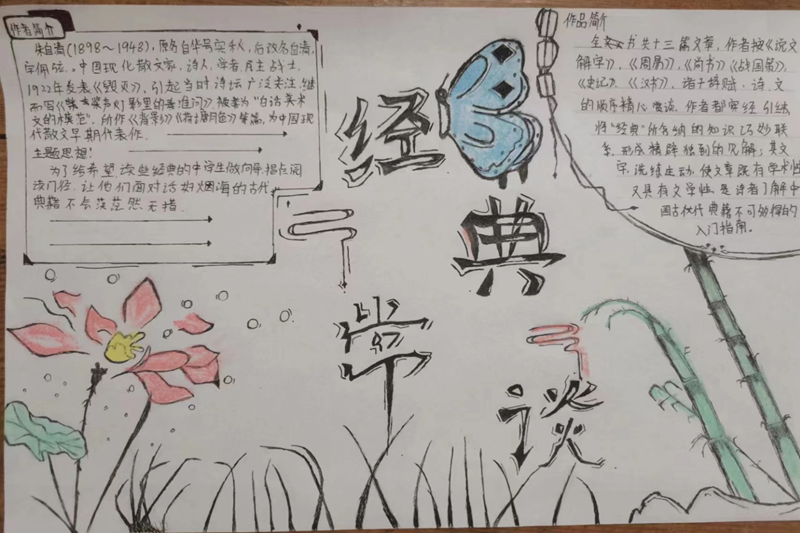 作者简介
朱自清(1898～1948),原名自华号实秋,后改名自清,
字佩弦。中国现代散文家,诗人,学者,民主战士.
1922年发表《毁灭》,引起当时诗坛广泛关注,继
而写《桨声灯影里的秦淮河》被誉为"白话美术
文的模范".所作《背影》《荷塘月色》等篇,为中国现
代散文早期代表作.
主题思想:
为了给希望读些经典的中学生做向导,指点阅
读门径.让他们面对浩如烟海的古代
典籍不会茫茫然无措.
经典
常谈
作品简介
全书共十三篇文章,作者按《说文
解字》,《周易》,《尚书》《战国策》,
《史记》,《汉书》,诸子辞赋.诗.文
的顺序精心
将"经典"所包纳的知识巧妙联
系.形成精辟独到的见解;其文
字.流畅生动.使文章既有学术性
又具有文学性.是读者了解中
国古代典籍不可多得的
入门指南.